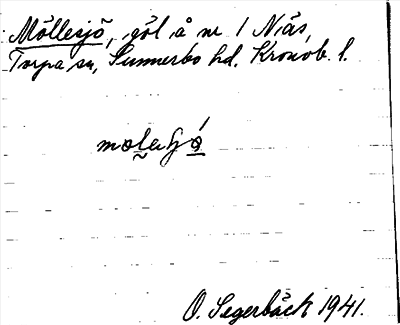 Möllesjö, göl å nr 1 Näs,
Torpa sn, Sunnerbo hd. Kronob. l.
O. Segerbäck 1941.